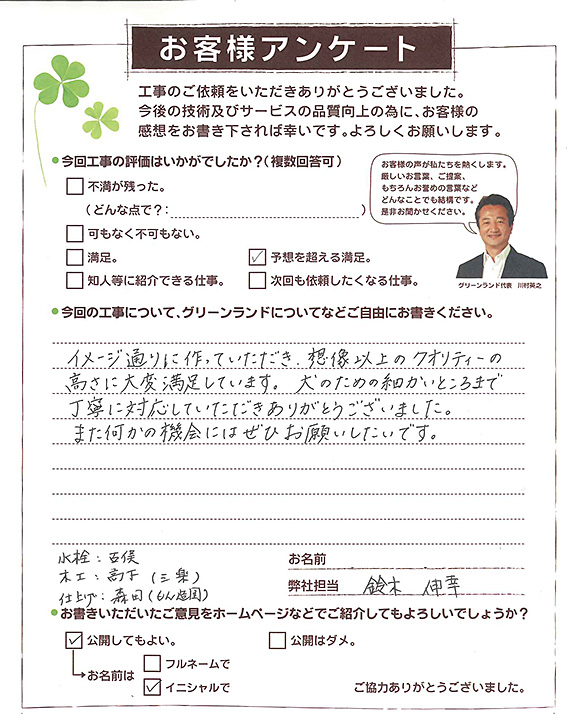 お客様アンケート
工事のご依頼をいただきありがとうございました。
今後の技術及びサービスの品質向上の為に、お客様の
感想をお書き下されば幸いです。よろしくお願いします。
●今回工事の評価はいかがでしたか？（複数回答可）
不満が残った。
（どんな点で？：　　　）
可もなく不可もない。
満足。
✓予想を超える満足。
知人等に紹介できる仕事。
次回も依頼したくなる仕事。
お客様の声が私たちを熱くします。
厳しいお言葉、ご提案、
もちろんお誉めの言葉など
どんなことでも結構です。
是非お聞かせください。
グリーンランド代表　川村英之
●今回の工事について、グリーンランドについてなどご自由にお書きください。
イメージ通りに作っていただき、想像以上のクオリティーの
高さに大変満足しています。犬のための細かいところまで
丁寧に対応していただきありがとうございました。
また何かの機会にはぜひお願いしたいです。
水栓：百俣
木工：宮下（三楽）
仕上げ：森田（もん造園）
お名前
弊社担当　鈴木　伸幸
●お書きいただいたご意見をホームページなどでご紹介してもよろしいでしょうか？
✓公開してもよい。
公開はダメ。
お名前は
フルネームで
✓イニシャルで
ご協力ありがとうございました。